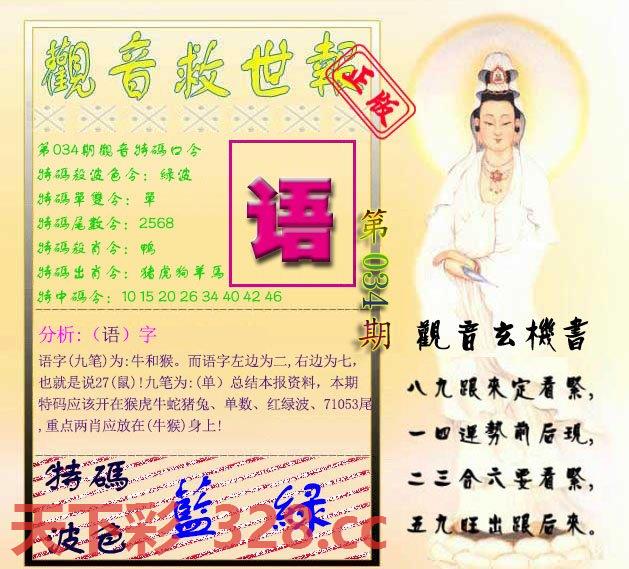 觀音救世報
正版
第034期觀音特碼口令
特碼殺波色令：綠波
特碼單雙令：單
特碼尾數令：2568
特碼殺肖令：鴨
特碼出肖令：猪虎狗羊馬
特中碼令：10 15 20 26 34 40 42 46
语
第034期
分析:（语）字
语字(九笔)为:牛和猴。而语字左边为二,右边为七,
也就是说27(鼠)!九笔为:(单）总结本报资料，本期
特码应该开在猴虎牛蛇猪兔、单数、红绿波、71053尾
,重点两肖应放在(牛猴)身上!
特碼
波色
藍 綠
觀音玄機書
八九跟來定看緊,
一四運勢前后現,
二三合六要看緊,
五九旺出跟后來。
天下彩1328.cc